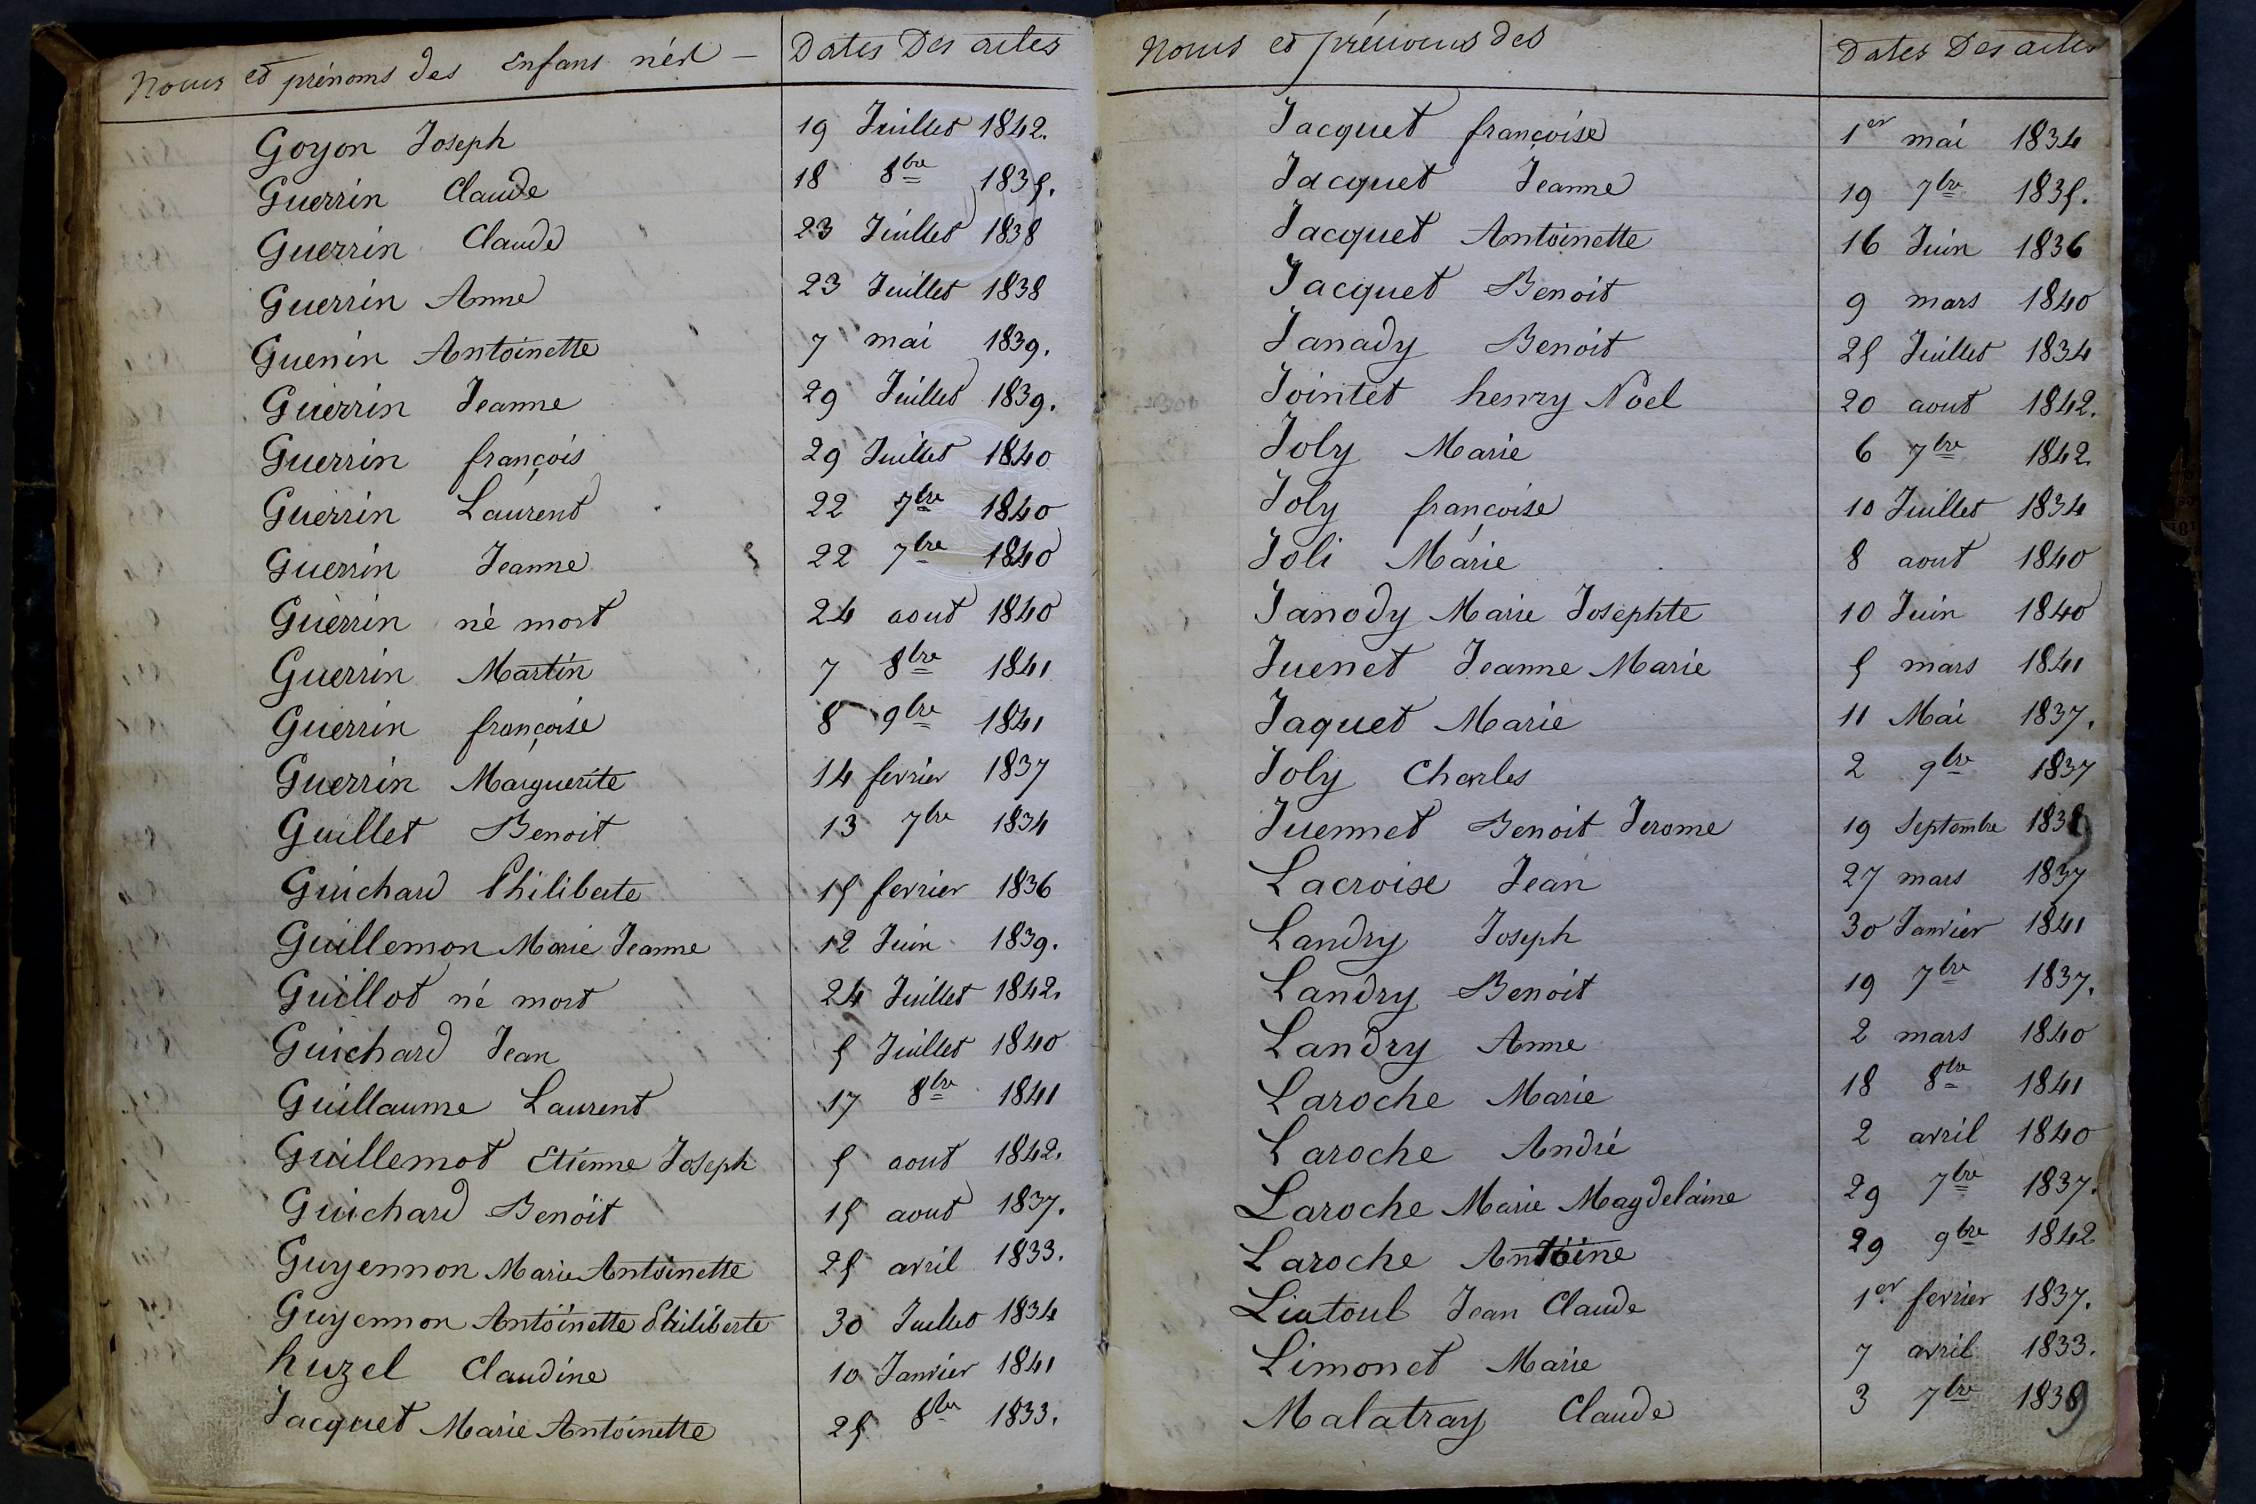 Noms et prénoms des Enfans nés — Dates Des actes
Goyon Joseph 19 Juillet 1842.
Guerrin Claude 18 8bre 1835.
Guerrin Claude 23 Juillet 1838
Guerrin Anne 23 Juillet 1838
Guenin Antoinette 7 mai 1839.
Guerrin Jeanne 29 Juillet 1839.
Guerrin françois 29 Juillet 1840
Guerrin Laurent 22 7bre 1840
Guerrin Jeanne 22 7bre 1840
Guerrin né mort 24 aout 1840
Guerrin Martin 7 8bre 1841
Guerrin françoise 8 9bre 1841
Guerrin Marguerite 14 fevrier 1837
Guillet Benoit 13 7bre 1834
Guichard Philiberte 15 fevrier 1836
Guillemon Marie Jeanne 12 Juin 1839.
Guillot né mort 24 Juillet 1842.
Guichard Jean 5 Juillet 1840
Guillaume Laurent 17 8bre 1841
Guillemot Etienne Joseph 5 aout 1842.
Guichard Benoit 15 aout 1837.
Guyennon Marie Antoinette 25 avril 1833.
Guyennon Antoinette Philiberte 30 Juillet 1834
huzel Claudine 10 Janvier 1841
Jacquet Marie Antoinette 25 8bre 1833.
Noms et prénoms des Dates Des actes
Jacquet françoise 1er mai 1834
Jacquet Jeanne 19 7bre 1835.
Jacquet Antoinette 16 Juin 1836
Jacquet Benoit 9 mars 1840
Janady Benoit 25 Juillet 1834
Jointet henry Noel 20 aout 1842.
Joly Marie 6 7bre 1842.
Joly françoise 10 Juillet 1834
Joli Marie 8 aout 1840
Janody Marie Josephte 10 Juin 1840
Juenet Jeanne Marie 5 mars 1841
Jaquet Marie 11 Mai 1837.
Joly Charles 2 9bre 1837
Juennet Benoit Jerome 19 Septembre 1839
Lacroise Jean 27 mars 1837
Landry Joseph 30 Janvier 1841
Landry Benoit 19 7bre 1837.
Landry Anne 2 mars 1840
Laroche Marie 18 8bre 1841
Laroche André 2 avril 1840
Laroche Marie Magdelaine 29 7bre 1837.
Laroche Antoine 29 9bre 1842
Liatoul Jean Claude 1er fevrier 1837.
Limonet Marie 7 avril 1833.
Malatray Claude 3 7bre 1839